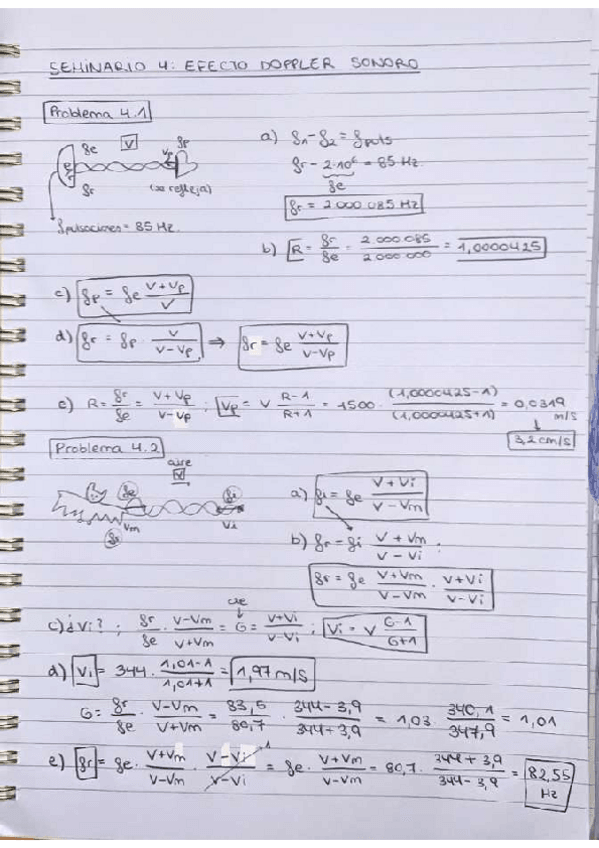 SEMINARIO 4: EFECTO DOPPLER SONORO
Problema 4.1
fe V vp fp
e
r
fr (se refleja)
fpulsaciones = 85 Hz.
a) f1 - f2 = fpuls
fr - 2·10⁶ = 85 Hz.
fe
fr = 2 000 085 Hz
b) R = fr/fe = 2 000 085/2 000 000 = 1,0000425
c) fp = fe (V+Vp)/V
d) fr = fp · V/(V-Vp) ⇒ fr = fe (V+Vp)/(V-Vp)
e) R = fr/fe = (V+Vp)/(V-Vp) ; Vp = V (R-1)/(R+1) = 1500 · (1,0000425-1)/(1,0000425+1) = 0,0319 m/s
↓
3,2 cm/s
Problema 4.2
aire
V
fe fi
Vm Vi
fr
a) fi = fe (V+Vi)/(V-Vm)
b) fr = fi (V+Vm)/(V-Vi) ;
fr = fe (V+Vm)/(V-Vm) · (V+Vi)/(V-Vi)
cte
↓
c) ¿Vi? ; fr/fe · (V-Vm)/(V+Vm) = G = (V+Vi)/(V-Vi) ; Vi = V (G-1)/(G+1)
d) Vi = 344 · (1,01-1)/(1,01+1) = 1,97 m/s
G = fr/fe · (V-Vm)/(V+Vm) = 83,5/80,7 · (344-3,9)/(344+3,9) = 1,03 · 340,1/347,9 = 1,01
e) fr = fe · (V+Vm)/(V-Vm) · (V-Vi)/(V-Vi) 1 = fe · (V+Vm)/(V-Vm) = 80,7 · (344+3,9)/(344-3,9) = 82,55 Hz